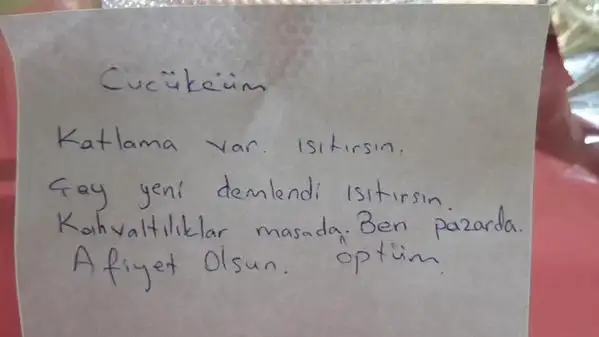 Cucükcüm
Katlama var. ısıtırsın.
Çay yeni demlendi ısıtırsın.
Kahvaltılıklar masada. Ben pazarda.
Afiyet Olsun. öptüm